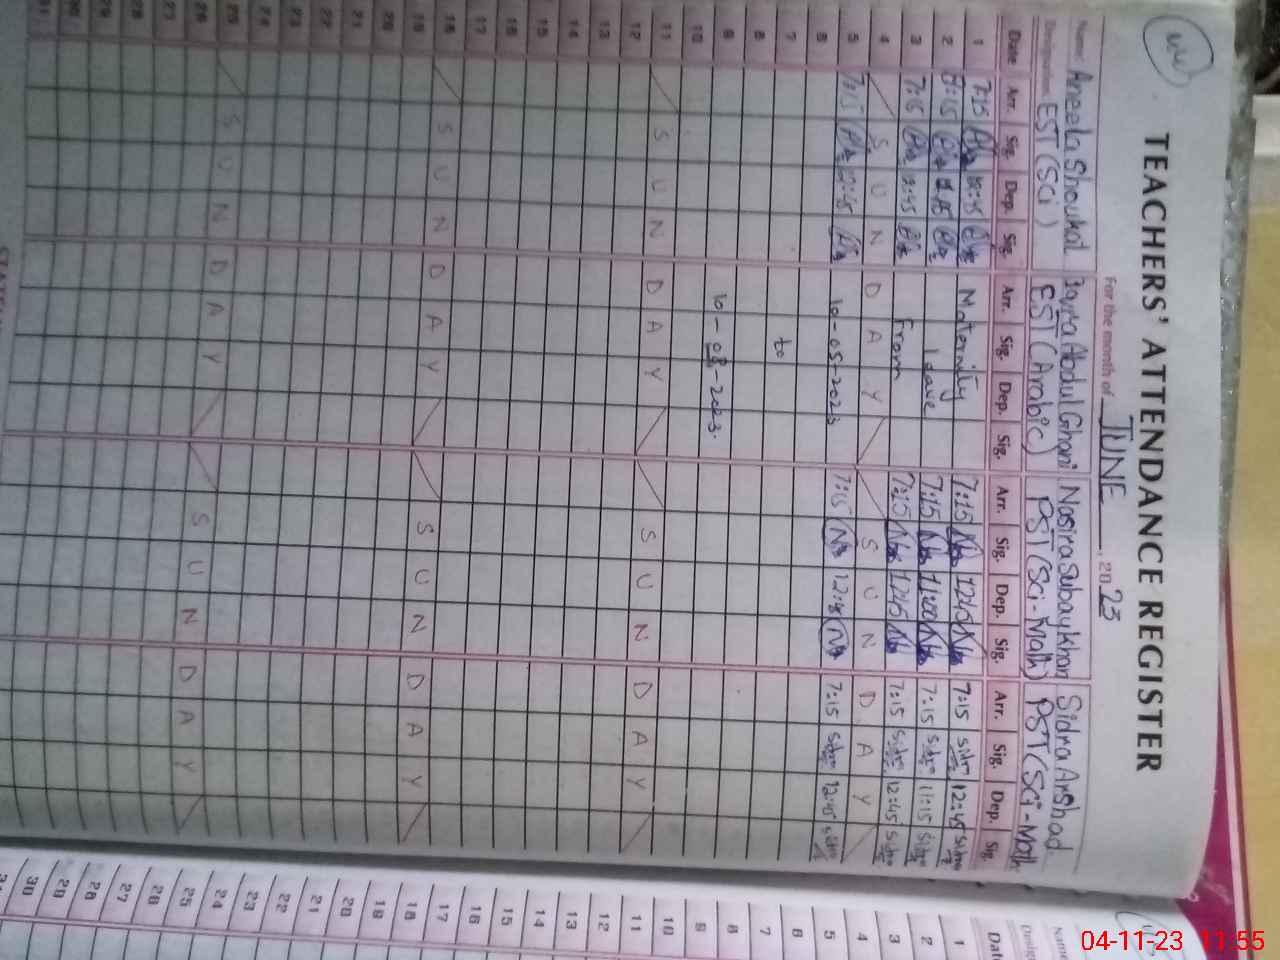 TEACHERS' ATTENDANCE REGISTER
For the month of JUNE, 2023
Name: Aneela Shoukat Iqra Abdul Ghani Nasira Subay Khan Sidra Arshad
Designation EST (Sci) EST (Arabic) PST (Sci-Math) PST (Sci-Math)
Date Arr. Sig. Dep. Sig. Arr. Sig. Dep. Sig. Arr. Sig. Dep. Sig. Arr. Sig. Dep. Sig.
1 7:15 12:45 Maternity 7:15 12:45 7:15 Sidra 12:45 Sidra
2 7:15 leave 7:15 11:00 7:15 Sidra 11:15 Sidra
3 7:15 12:45 From 7:15 12:45 7:15 Sidra 12:45 Sidra
4 SUNDAY SUNDAY
5 7:15 12:45 10-05-2023 7:15 12:45 7:15 Sidra 12:45 Sidra
6
7 to
8
9 10-08-2023.
10
11 SUNDAY SUNDAY
12
13
14
15
16
17
18 SUNDAY SUNDAY
19
20
21
22
23
24
25 SUNDAY SUNDAY
26
27
28
29
30
31
Name
Date
1
2
3
4
5
6
7
8
9
10
11
12
13
14
15
16
17
18
19
20
21
22
23
24
25
26
27
28
29
30
04-11-23 11:55